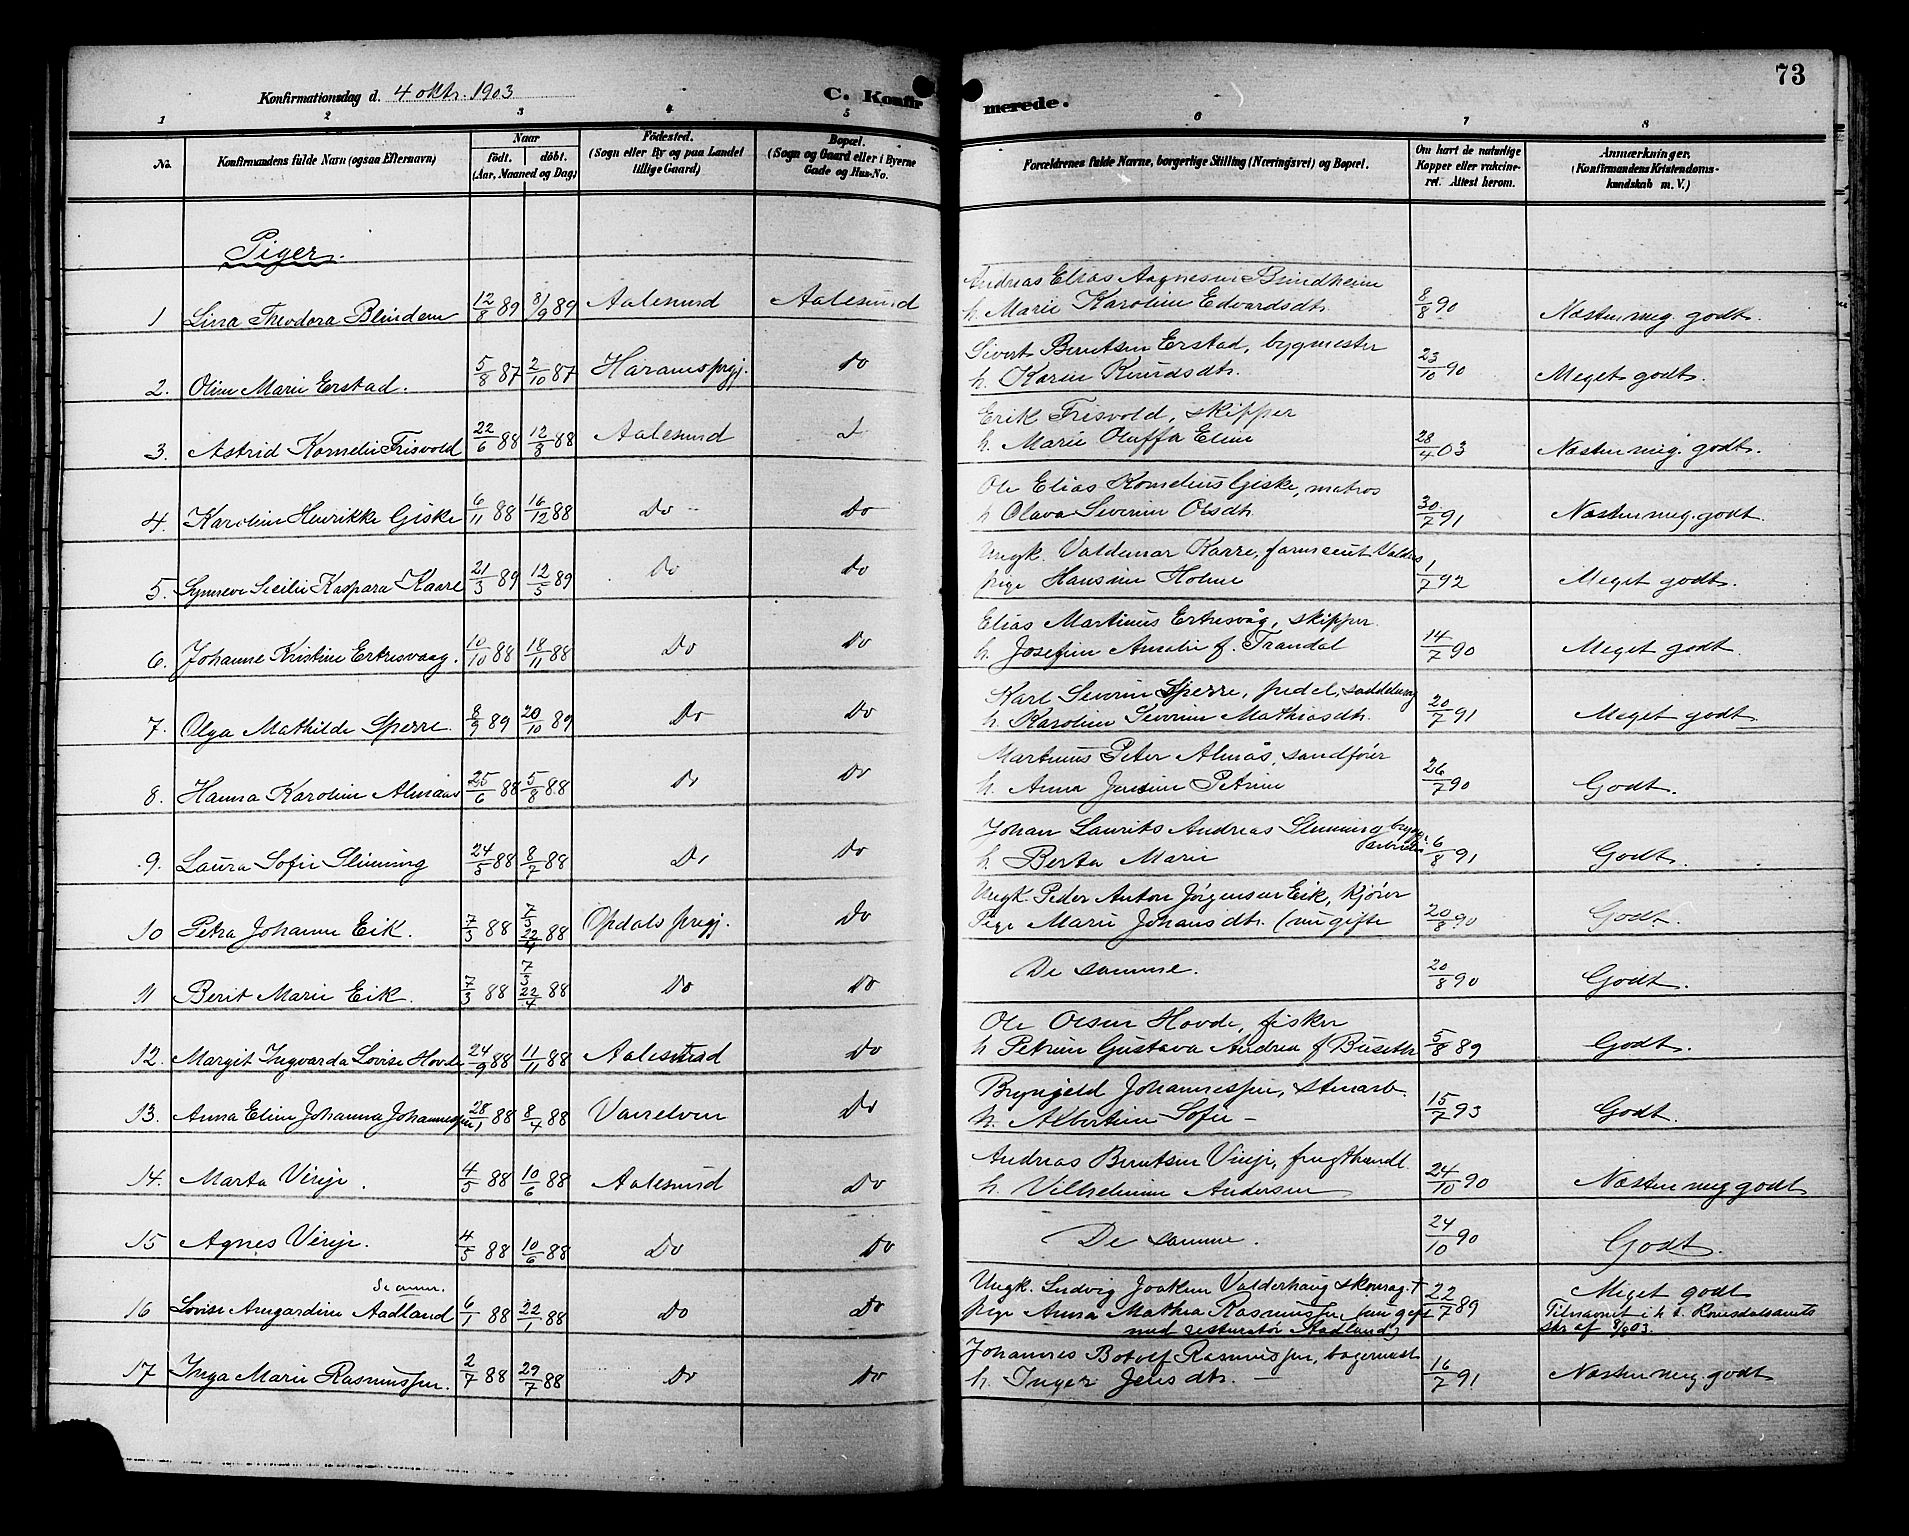 73
Konfirmationsdag d. 4 okt. 1903
C. Konfirmerede.
1 2 3 4 5 6 7 8
No.
Konfirmandens fulde Navn (ogsaa Efternavn)
Naar
født. døbt.
(Aar, Maaned og Dag)
Fødested.
(Sogn eller By og paa Landet
tillige Gaard)
Bopæl.
(Sogn og Gaard eller i Byerne
Gade og Hus-No.
Forældrenes fulde Navne, borgerlige Stilling (Næringsvei) og Bopæl.
Om havt de naturlige
Kopper eller vakcine-
ret. Attest herom.
Anmærkninger.
(Konfirmandens Kristendoms-
kundskab m. V.)
Piger.
Andreas Elias Aagnesen Blindheim
1 Lina Theodora Blindem 12/8 89 8/9 89 Aalesund Aalesund h. Marie Karoline Edvardsdtr. 8/8 90 Næsten meg. godt.
Sivert Berntsen Erstad, bygmester
2. Oline Marie Erstad. 5/8 87 2/10 87 Haramsprgj. Do h. Karen Knudsdtr. 23/10 90 Meget godt.
Erik Frisvold, skipper
3. Astrid Kornelie Frisvold 22/6 88 12/8 88 Aalesund h. Marie Oluffa Eline 28/4 03 Næsten meg. godt.
Ole Elias Kornelius Giske, matros
4. Karoline Henrikke Giske 6/11 88 16/12 88 Do Do h Olava Severine Olsdtr. 30/7 91 Næsten meg. godt.
Ungk. Valdemar Kaare, farmaceut
5. Synneve Secilie Kaspara Kaare 21/3 89 12/5 89 Do Do pige Hansine Holme 1/7 92 Meget godt.
Elias Martinus Ertresvåg, skipper.
6. Johanne Kristine Ertresvaag. 10/10 88 18/11 88 Do Do h. Josefine Amalie f. Trandal 14/7 90 Meget godt.
Karl Severin Sperre, pedel,
7. Olga Mathilde Sperre. 8/9 89 20/10 89 Do Do h. Karoline Severine Mathiasdtr. 20/7 91 Meget godt
Martinus Peter Almås, sandfører
8. Hanna Karoline Almaas 25/6 88 5/8 88 Do Do h. Anna Jensine Petrine 26/7 90 Godt.
Johan Laurits Andreas Slinning brygge-
arbeider
9. Laura Sofie Slinning 24/5 88 8/7 88 Do Do h Berta Marie 6/8 91 Godt.
Ungk. Peder Anton Jørgensen Eik, kjører
10 Petra Johanne Eik. 7/3 88 7/3 22/4 88 Opdals prgj. Do Pige Marie Johansdtr. (nu gifte 20/8 90 Godt.
11 Berit Marie Eik. 7/3 88 7/3 22/4 88 Do Do De samme. 20/8 90 Godt.
Ole Olsen Hovde, fisker
12. Margit Ingvarda Lovise Hovde 24/9 88 11/11 88 Aalesund Do h Petrine Gustava Andrea f Buseth 5/8 89 Godt.
Bryngeld Johannessen, stenarb.
13. Anna Eline Johanna Johannessen 28/1 88 8/4 88 Vanelven Do h. Albertine Sofie - 15/7 93 Godt.
Andreas Berntsen Vinje, frugthandl.
14. Marta Vinje. 4/5 88 10/6 88 Aalesund Do h. Vilhelmine Andersen 24/10 90 Næsten meg godt
15 Agnes Vinje. 4/5 88 10/6 88 Do Do De samme. 24/10 90 Godt.
Ungk. Ludvig Joakim Valderhaug
16 Lovise Amgardine Aadland 6/1 88 22/1 88 Do Do pige Anna Mathea Rasmussen (nu gift
med restauratør Aadland) 22/7 89 Meget godt
Tilnavnet i h. t. Romsdalsamts
skr af 8/9 03.
Johannes Botolf Rasmussen, bagermest
17 Inga Marie Rasmussen. 2/7 88 29/7 88 Do Do h. Inger Jensdtr. 16/7 91 Næsten meg. godt